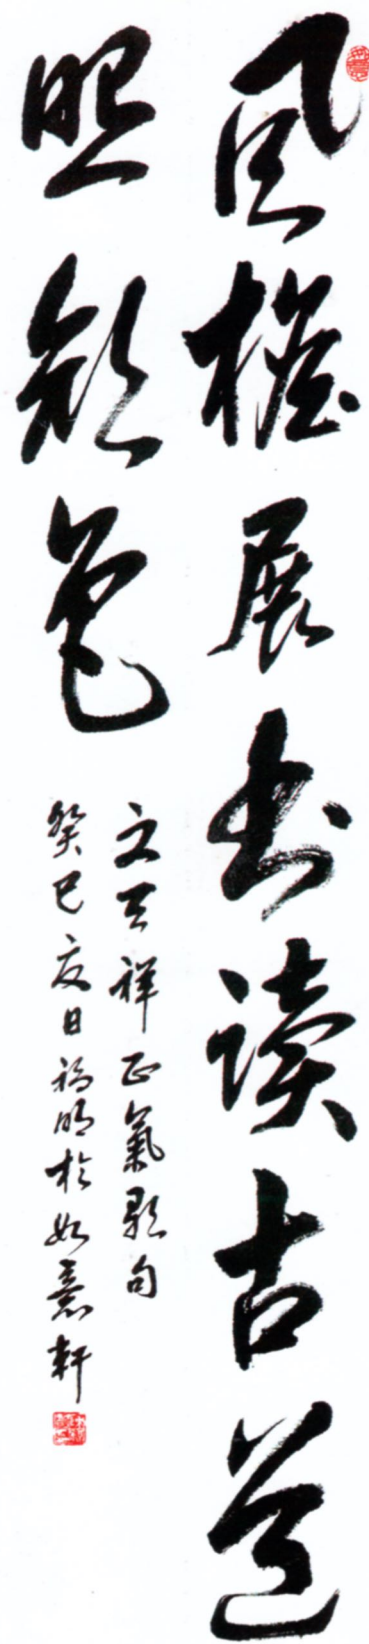 风檐展书读古道
照颜色
文天祥正氣歌句
癸巳夏日福明於如意轩